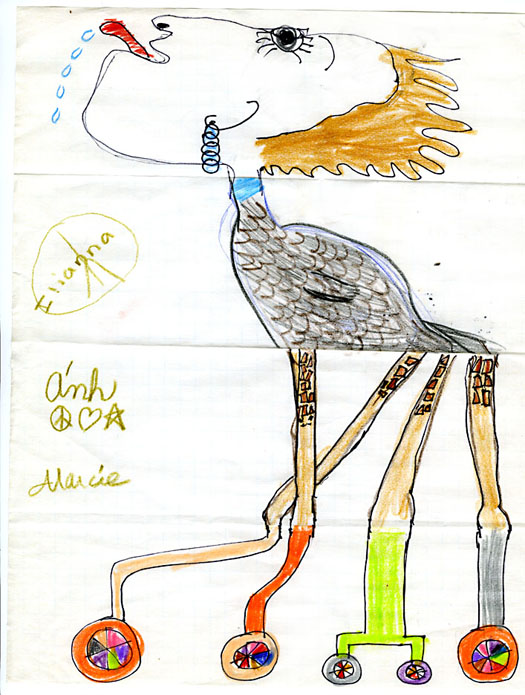 Elianna
Ánh
Marcie